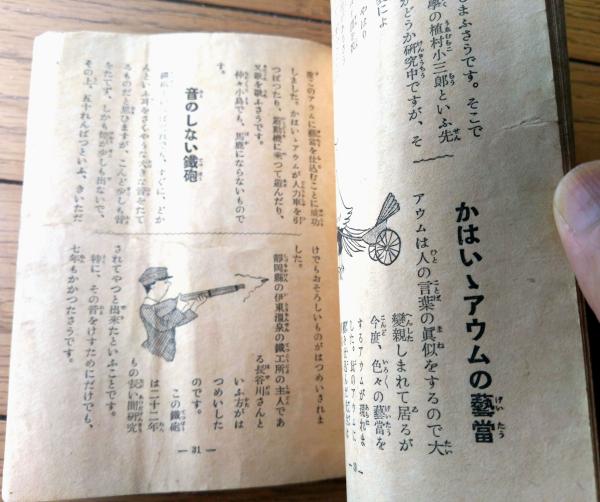 しまふさうです。そこで
學の植村小三郎といふ先
がどうか研究中ですが、そ
やはり
によ
かはいゝアウムの藝當
アウムは人の言葉の眞似をするので大
變親しまれて居るが
今度、色々の藝當を
するアウムが現れま
した。
— 30 —
藝當を仕込むことに成功
しました。かはいゝアウムが人力車を引
つぱつたり、遊動機に乘つて遊んだり、
又歌を歌ふさうです。
仲々小鳥でも、馬鹿にならないもので
す。
音のしない鐵砲
るものだと思ひますが、こんど少しも音
をたてず、しかも煙が少しも出ないで、
その上、五十れんぱつといふ、きいただ
けでもおそろしいものがはつめいされま
した。
靜岡縣の伊東溫泉の鐵工所の主人であ
る長谷川さんと
いふ方がは
つめいした
のです。
この鐵砲
は二十二年
もの長い間研究
されてやつと出來たといふことです。
特に、その音をけすためにだけでも、
七年もかかつたさうです。
— 31 —